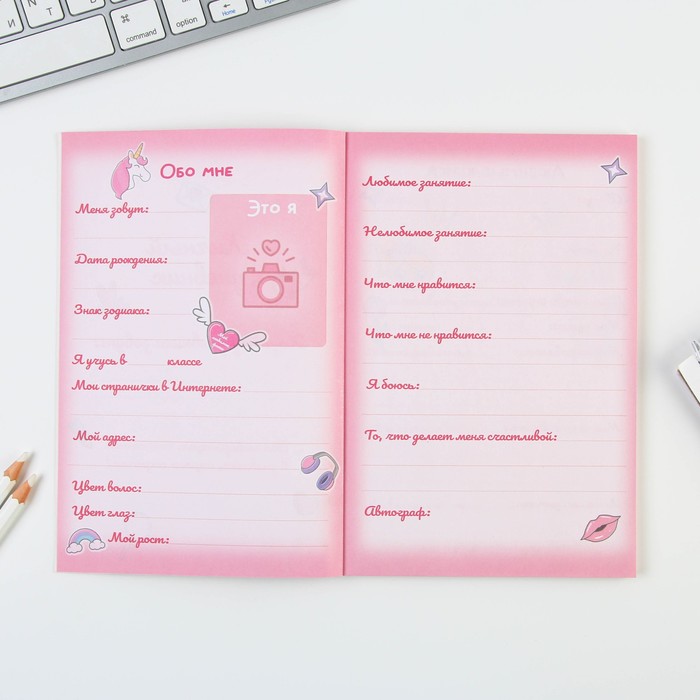 И
Т
⌘
command
option
Home
Обо мне
Это я
Меня зовут:
Дата рождения:
Знак зодиака:
Я учусь в классе
Мои странички в Интернете:
Мой адрес:
Цвет волос:
Цвет глаз:
Мой рост:
Любимое занятие:
Нелюбимое занятие:
Что мне нравится:
Что мне не нравится:
Я боюсь:
То, что делает меня счастливой:
Автограф: